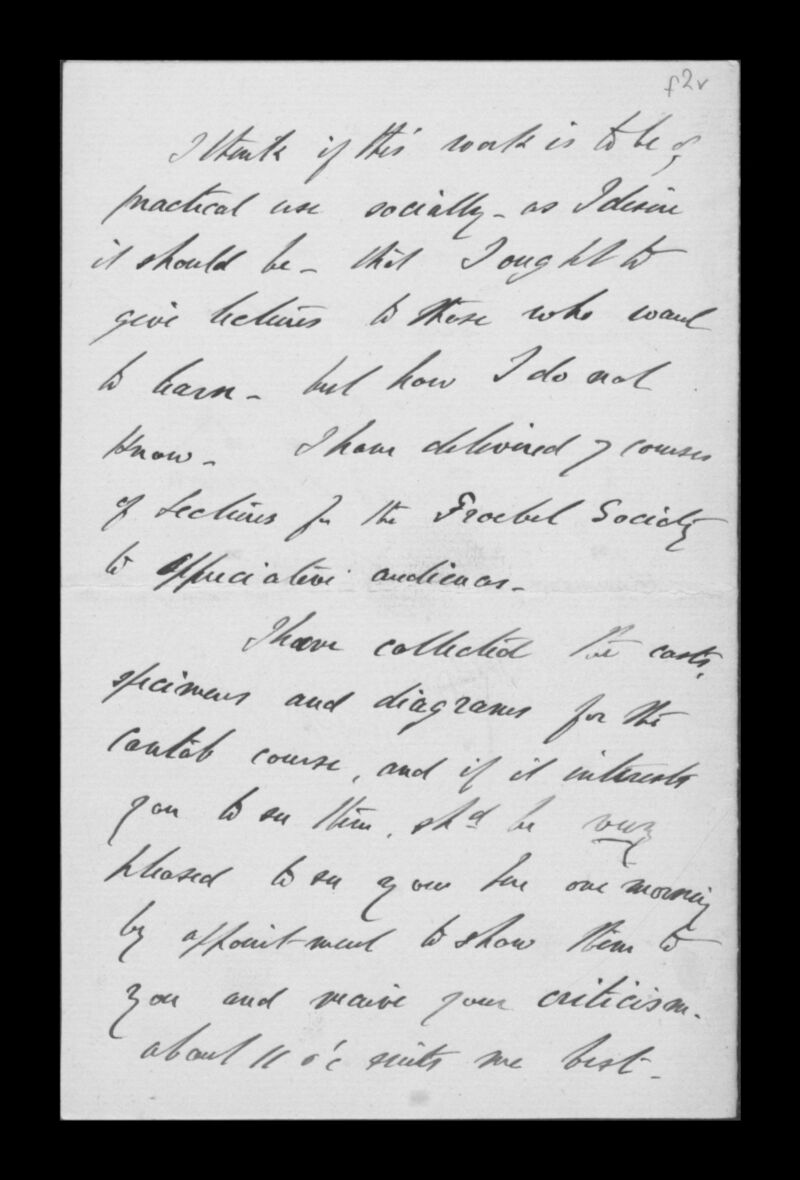 f2v
I think if this work is to be of
practical use socially - as I desire
it should be - that I ought to
give lectures to those who want
to learn - but how I do not
know - I have delivered 7 courses
of Lectures for the Froebel Society
to appreciative audiences -
I have collected the casts,
specimens and diagrams for the
Cantab course, and if it interests
you to see them, shd be very
pleased to see you here one morning
by appointment to show them to
you and receive your criticism.
about 11 o'c suits me best -